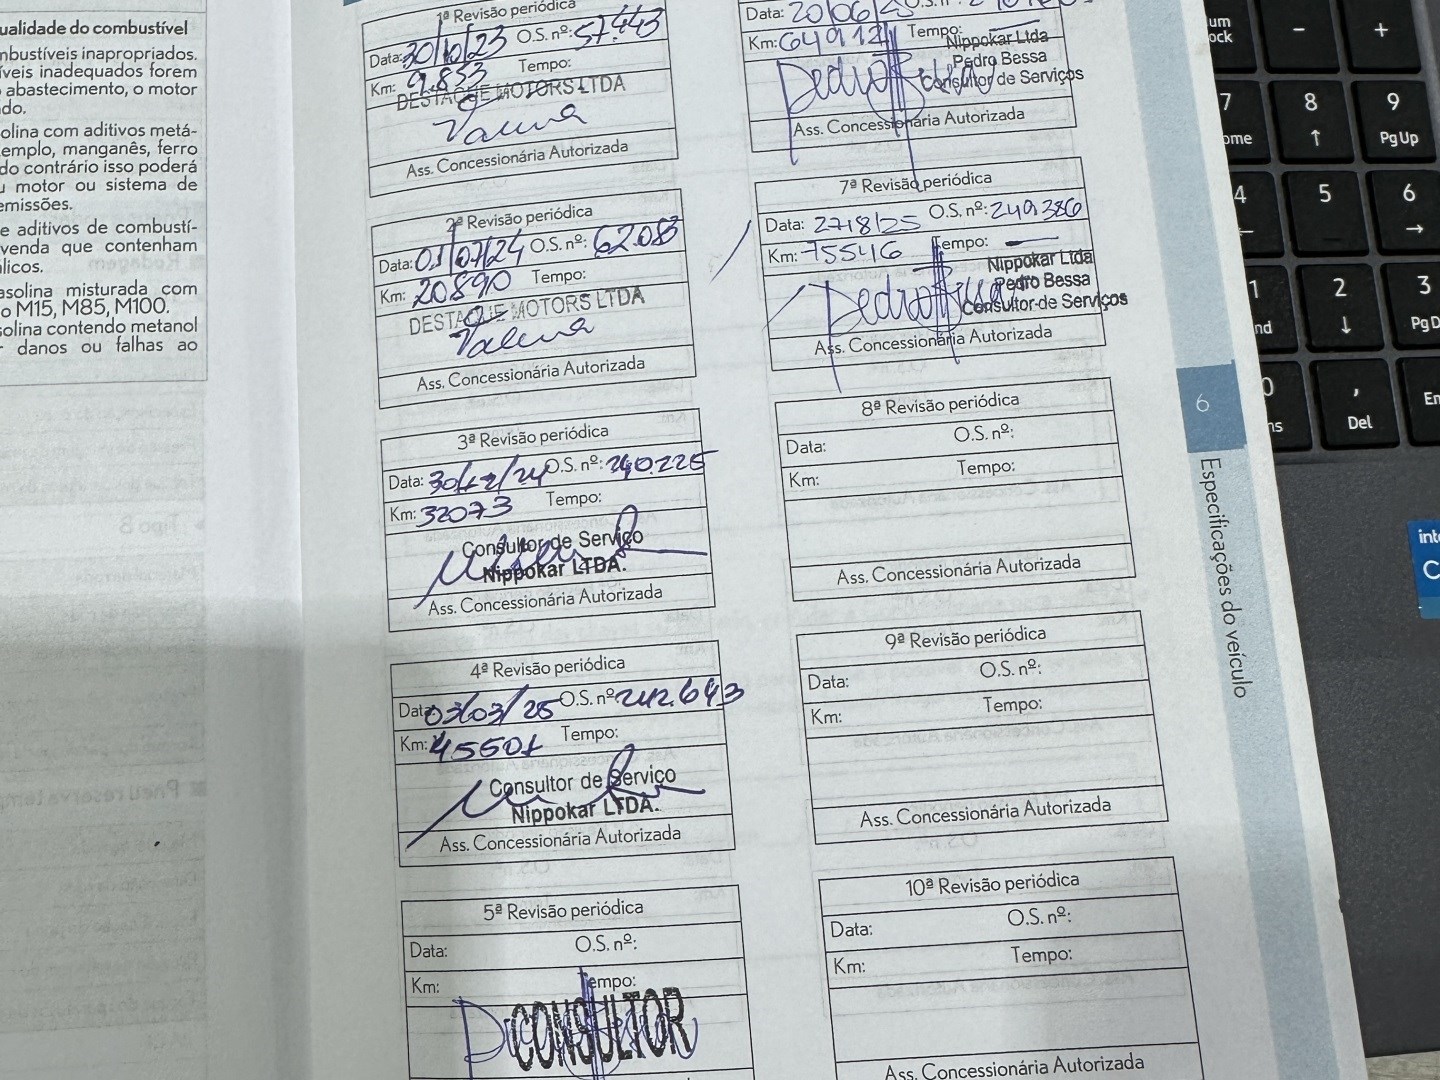 ualidade do combustível
nbustíveis inapropriados.
íveis inadequados forem
o abastecimento, o motor
do.
olina com aditivos metá-
emplo, manganês, ferro
do contrário isso poderá
u motor ou sistema de
emissões.
e aditivos de combustí-
venda que contenham
álicos.
asolina misturada com
o M15, M85, M100.
solina contendo metanol
r danos ou falhas ao
1ª Revisão periódica
Data: 30/10/23 O.S. nº: 57.443
Km: 9.853 Tempo:
DESTAQUE MOTORS LTDA
Ass. Concessionária Autorizada
2ª Revisão periódica
Data: 01/07/24 O.S. nº: 62.08
Km: 20890 Tempo:
DESTAQUE MOTORS LTDA
Ass. Concessionária Autorizada
3ª Revisão periódica
Data: 30/12/24 O.S. nº: 240.225
Km: 32073 Tempo:
Consultor de Serviço
Nippokar LTDA.
Ass. Concessionária Autorizada
4ª Revisão periódica
Data: 03/03/25 O.S. nº: 242.643
Km: 45501 Tempo:
Consultor de Serviço
Nippokar LTDA.
Ass. Concessionária Autorizada
5ª Revisão periódica
Data: O.S. nº:
Km: Tempo:
CONSULTOR
Data: 20/06/25 O.S. nº:
Km: 64912 Tempo:
Nippokar Ltda
Pedro Bessa
Consultor de Serviços
Ass. Concessionária Autorizada
7ª Revisão periódica
Data: 27/8/25 O.S. nº: 249.386
Km: 75546 Tempo:
Nippokar Ltda
Pedro Bessa
Consultor de Serviços
Ass. Concessionária Autorizada
8ª Revisão periódica
Data: O.S. nº:
Km: Tempo:
Ass. Concessionária Autorizada
9ª Revisão periódica
Data: O.S. nº:
Km: Tempo:
Ass. Concessionária Autorizada
10ª Revisão periódica
Data: O.S. nº:
Km: Tempo:
Ass. Concessionária Autorizada
6
Especificações do veículo
um
ock
-
+
7
ome
8
↑
9
PgUp
4
←
5
6
→
1
nd
2
↓
3
PgD
0
ns
,
Del
En
inte
C